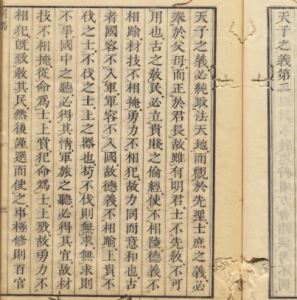 天子之義第二
天子之義必純取法天地而觀於先聖士庶之義必
奉於父母而正於君長故雖有明君士不先教不可
用也古之教民必立貴賤之倫經使不相陵德義不
相踰材技不相掩勇力不相犯故力同而意和也古
者國容不入軍軍容不入國故德義不相踰上貴不
伐之士不伐之士上之器也苟不伐則無求無求則
不爭國中之聽必得其情軍旅之聽必得其宜故材
技不相掩從命爲士上賞犯命爲士上戮故勇力不
相犯既致教其民然後謹選而使之事極修則百官